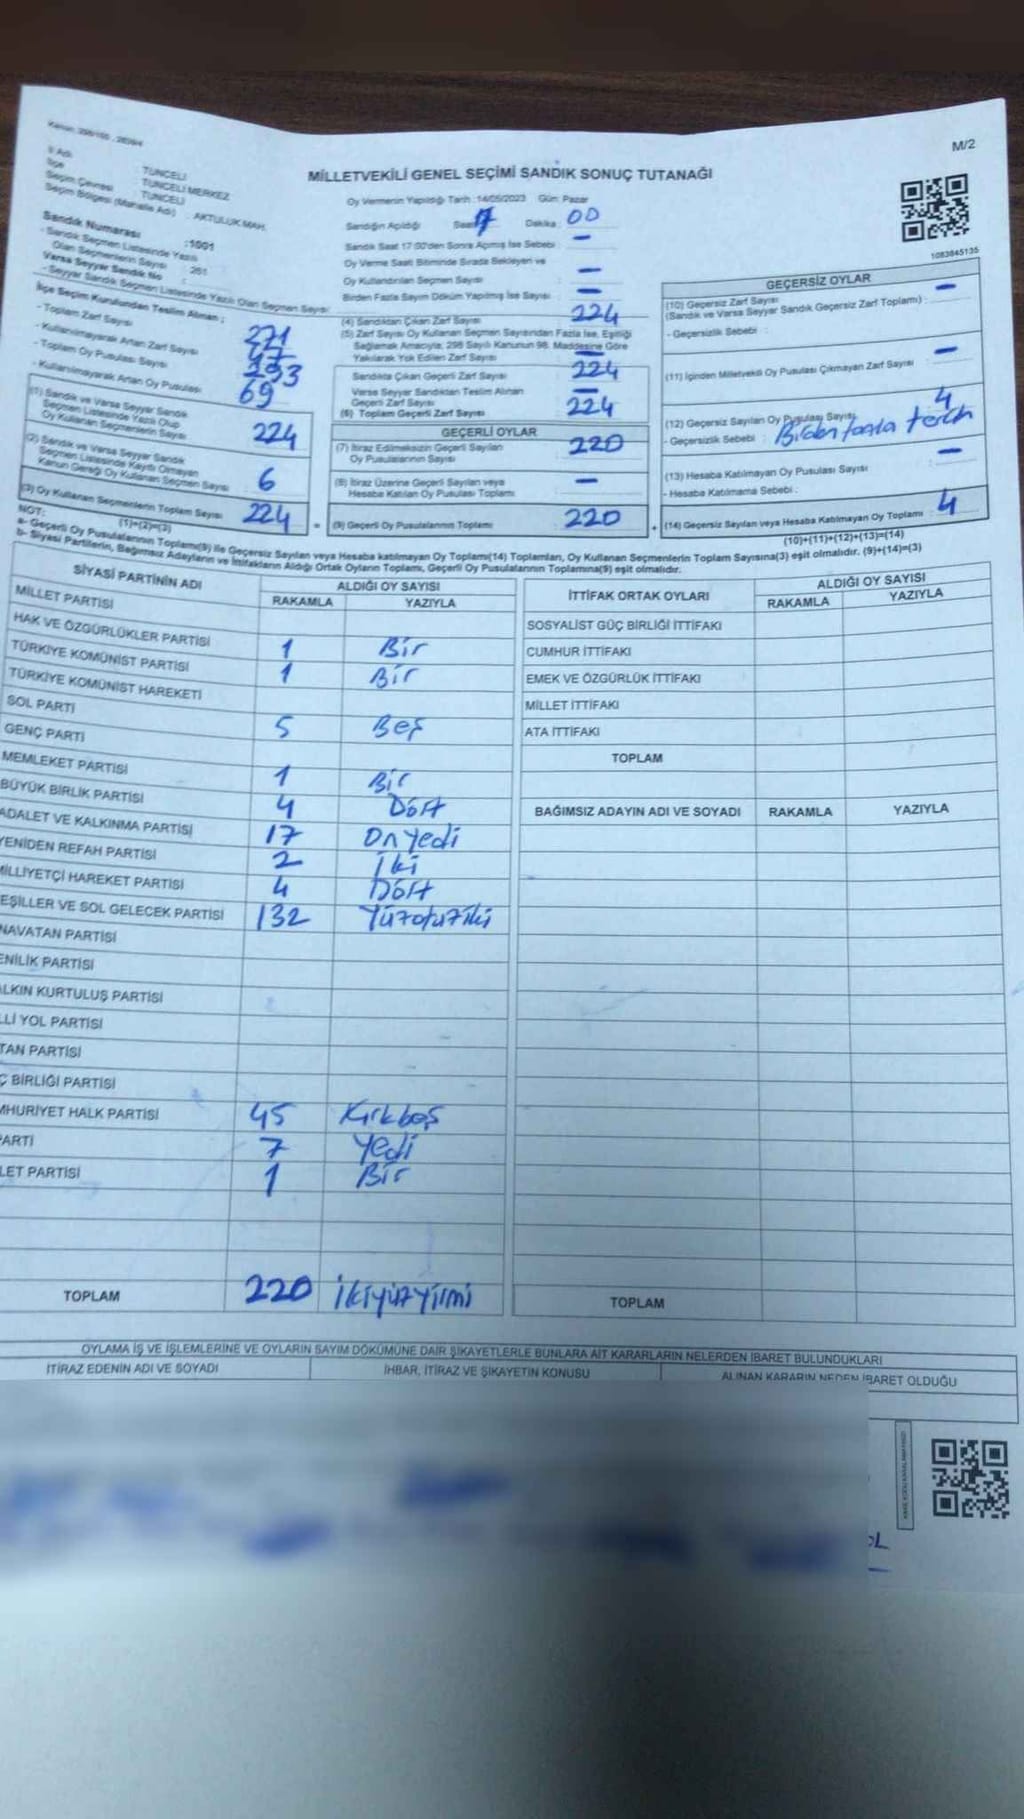 M/2
MİLLETVEKİLİ GENEL SEÇİMİ SANDIK SONUÇ TUTANAĞI
İl Adı
İlçe TUNCELİ
Seçim Çevresi TUNCELİ MERKEZ
TUNCELİ
Seçim Bölgesi (Mahalle Adı) : AKTULUK MAH.
Sandık Numarası :1001
- Sandık Seçmen Listesinde Yazılı
Olan Seçmenlerin Sayısı : 261
Varsa Seyyar Sandık No
- Seyyar Sandık Seçmen Listesinde Yazılı Olan Seçmen Sayısı
İlçe Seçim Kurulundan Teslim Alınan ;
- Toplam Zarf Sayısı 271
- Kullanılmayarak Artan Zarf Sayısı 47
- Toplam Oy Pusulası Sayısı 293
- Kullanılmayarak Artan Oy Pusulası 69
(1) Sandık ve Varsa Seyyar Sandık
Seçmen Listesinde Yazılı Olup
Oy Kullanan Seçmenlerin Sayısı 224
(2) Sandık ve Varsa Seyyar Sandık
Seçmen Listesinde Kayıtlı Olmayan
Kanun Gereği Oy Kullanan Seçmen Sayısı 6
(3) Oy Kullanan Seçmenlerin Toplam Sayısı 224
(1)+(2)=(3)
Oy Vermenin Yapıldığı Tarih : 14/05/2023 Gün: Pazar
Sandığın Açıldığı Saat 17 Dakika 00
Sandık Saat 17:00'den Sonra Açılmış İse Sebebi : –
Oy Verme Saati Bitiminde Sırada Bekleyen ve
Oy Kullandırılan Seçmen Sayısı –
Birden Fazla Sayım Döküm Yapılmış İse Sayısı –
(4) Sandıktan Çıkan Zarf Sayısı 224
(5) Zarf Sayısı Oy Kullanan Seçmen Sayısından Fazla İse, Eşitliği
Sağlamak Amacıyla, 298 Sayılı Kanunun 98. Maddesine Göre
Yakılarak Yok Edilen Zarf Sayısı –
Sandıkta Çıkan Geçerli Zarf Sayısı 224
Varsa Seyyar Sandıktan Teslim Alınan
Geçerli Zarf Sayısı –
(6) Toplam Geçerli Zarf Sayısı 224
GEÇERLİ OYLAR
(7) İtiraz Edilmeksizin Geçerli Sayılan
Oy Pusulalarının Sayısı 220
(8) İtiraz Üzerine Geçerli Sayılan veya
Hesaba Katılan Oy Pusulası Toplamı –
= (9) Geçerli Oy Pusulalarının Toplamı 220
1083845135
GEÇERSİZ OYLAR
(10) Geçersiz Zarf Sayısı
(Sandık ve Varsa Seyyar Sandık Geçersiz Zarf Toplamı) : –
- Geçersizlik Sebebi :
(11) İçinden Milletvekili Oy Pusulası Çıkmayan Zarf Sayısı –
(12) Geçersiz Sayılan Oy Pusulası Sayısı 4
- Geçersizlik Sebebi : Birden fazla tercih
(13) Hesaba Katılmayan Oy Pusulası Sayısı –
- Hesaba Katılmama Sebebi :
+ (14) Geçersiz Sayılan veya Hesaba Katılmayan Oy Toplamı : 4
(10)+(11)+(12)+(13)=(14)
NOT:
a- Geçerli Oy Pusulalarının Toplamı(9) ile Geçersiz Sayılan veya Hesaba katılmayan Oy Toplamı(14) Toplamları, Oy Kullanan Seçmenlerin Toplam Sayısına(3) eşit olmalıdır. (9)+(14)=(3)
b- Siyasi Partilerin, Bağımsız Adayların ve İttifakların Aldığı Ortak Oyların Toplamı, Geçerli Oy Pusulalarının Toplamına(9) eşit olmalıdır.
SİYASİ PARTİNİN ADI ALDIĞI OY SAYISI
RAKAMLA YAZIYLA
MİLLET PARTİSİ
HAK VE ÖZGÜRLÜKLER PARTİSİ 1 Bir
TÜRKİYE KOMÜNİST PARTİSİ 1 Bir
TÜRKİYE KOMÜNİST HAREKETİ
SOL PARTİ 5 Beş
GENÇ PARTİ
MEMLEKET PARTİSİ 1 Bir
BÜYÜK BİRLİK PARTİSİ 4 Dört
ADALET VE KALKINMA PARTİSİ 17 Onyedi
YENİDEN REFAH PARTİSİ 2 İki
MİLLİYETÇİ HAREKET PARTİSİ 4 Dört
EŞİLLER VE SOL GELECEK PARTİSİ 132 Yüzotuziki
NAVATAN PARTİSİ
ENİLİK PARTİSİ
ALKIN KURTULUŞ PARTİSİ
LLİ YOL PARTİSİ
TAN PARTİSİ
Ç BİRLİĞİ PARTİSİ
MHURİYET HALK PARTİSİ 45 Kırkbeş
PARTİ 7 Yedi
LET PARTİSİ 1 Bir
TOPLAM 220 İkiyüzyirmi
İTTİFAK ORTAK OYLARI ALDIĞI OY SAYISI
RAKAMLA YAZIYLA
SOSYALİST GÜÇ BİRLİĞİ İTTİFAKI
CUMHUR İTTİFAKI
EMEK VE ÖZGÜRLÜK İTTİFAKI
MİLLET İTTİFAKI
ATA İTTİFAKI
TOPLAM
BAĞIMSIZ ADAYIN ADI VE SOYADI RAKAMLA YAZIYLA
TOPLAM
OYLAMA İŞ VE İŞLEMLERİNE VE OYLARIN SAYIM DÖKÜMÜNE DAİR ŞİKAYETLERLE BUNLARA AİT KARARLARIN NELERDEN İBARET BULUNDUKLARI
İTİRAZ EDENİN ADI VE SOYADI İHBAR, İTİRAZ VE ŞİKAYETİN KONUSU ALINAN KARARIN NEDEN İBARET OLDUĞU